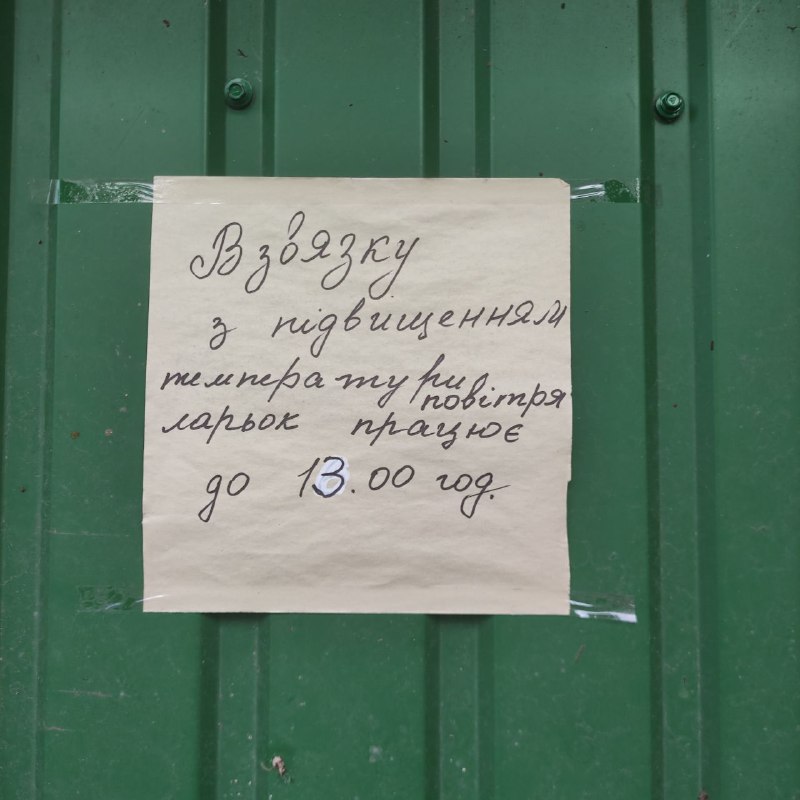 В зв'язку
з підвищенням
температури
повітря
ларьок працює
до 13.00 год.